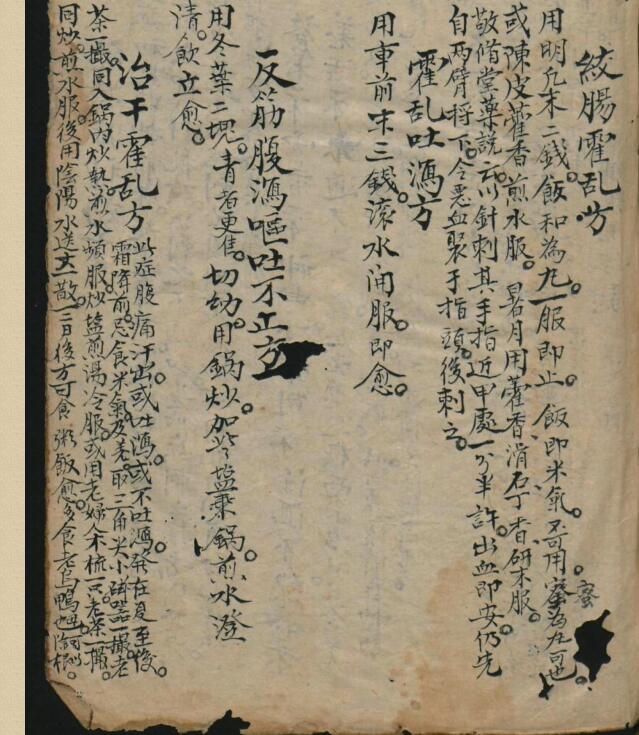 絞腸霍乱方
用明凡末二錢。飯和為丸。一服即止。飯即米氣。不可用。蜜為丸可也。
蜜
或陳皮藿香煎水服。暑月用藿香滑石丁香研末服。
敬脩堂藥說云。以針刺其手指近甲處一分半許。出血即安。仍先
自两臂捋下。令惡血聚于指頭。後刺之。
霍乱吐瀉方
用事前末三錢。滚水開服。即愈。
反筋腹瀉嘔吐不止方
用冬葉二塊。青者更佳。切幼。用鍋炒。加些塩乘鍋。煎水澄
清。飲立愈。
治干霍乱方
此症腹痛汗出。或吐瀉。或不吐瀉。發在夏至後。
霜降前。忌食米氣及羌。取三角尖小 器一撮。老
茶一撮。同入鍋内炒熱。煎水頻服。炒塩煎湯冷服。或用老婦人木梳一只。老茶一撮。
同炒。煎水服。後用陰陽水送立一散。一二日後方可食粥飯。愈。多食老鳥鴨